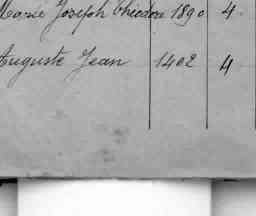 Marie Joseph Théodore 1890 4
Auguste Jean 1402 4